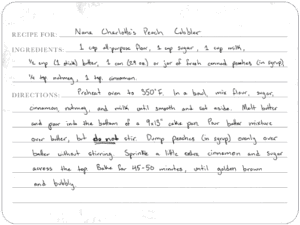 RECIPE FOR: Nana Charlotte's Peach Cobbler
INGREDIENTS: 1 cup all-purpose flour, 1 cup sugar, 1 cup milk,
½ cup (1 stick) butter, 1 can (29 oz) or jar of fresh canned peaches (in syrup)
¼ tsp nutmeg, 1 tsp. cinnamon.
DIRECTIONS: Preheat oven to 350°F. In a bowl mix flour, sugar,
cinnamon, nutmeg, and milk until smooth and set aside. Melt butter
and pour into the bottom of a 9x13" cake pan. Pour batter mixture
over butter, but do not stir. Dump peaches (in syrup) evenly over
batter without stirring. Sprinkle a little extra cinnamon and sugar
across the top. Bake for 45-50 minutes, until golden brown
and bubbly.